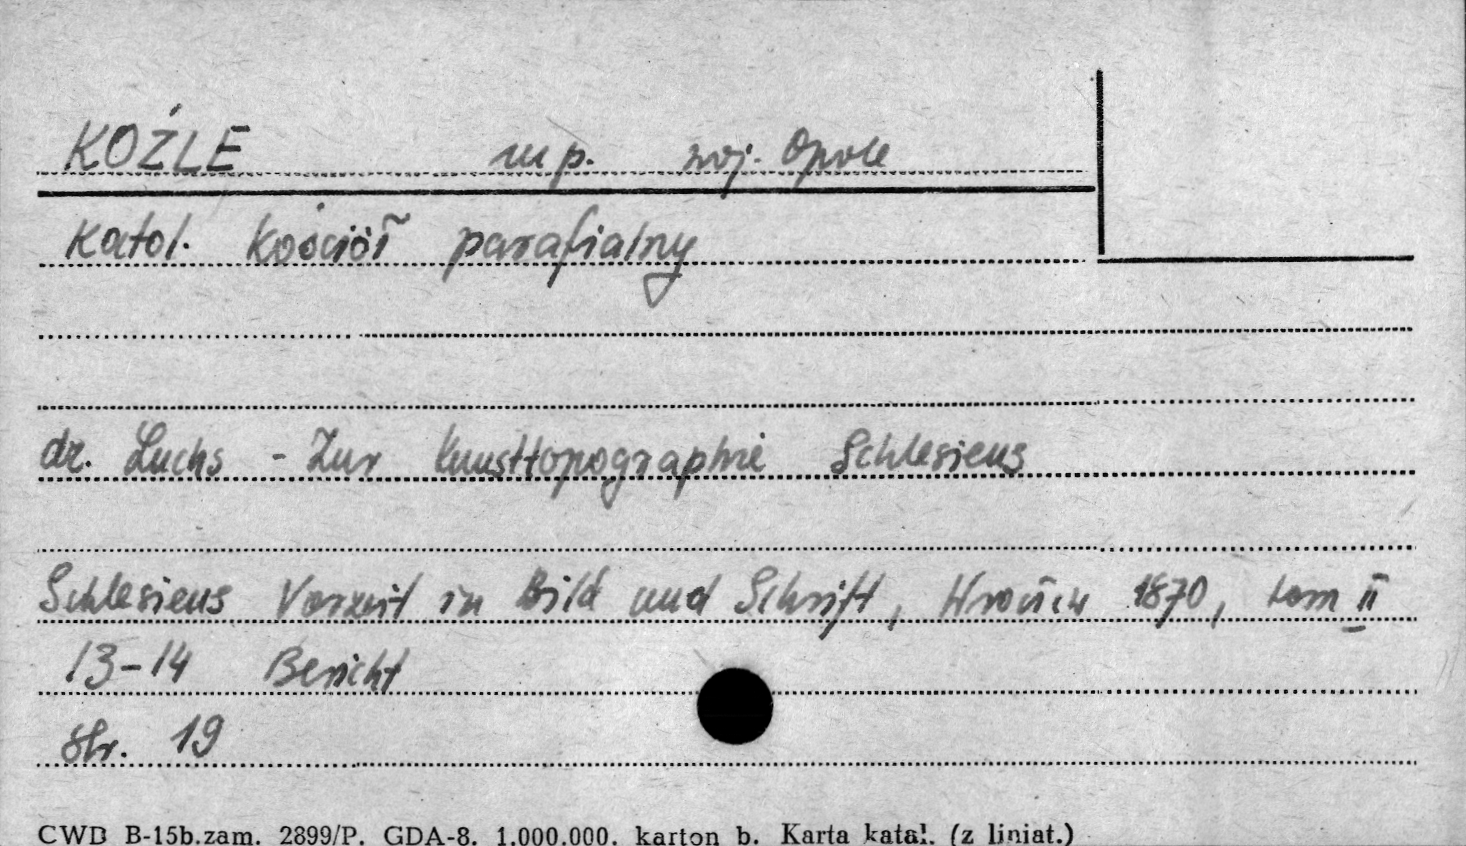 KOŹLE m p. woj. Opole
Katol. Kościół parafialny
dr. Luchs - Zur Kunsttopographie Schlesiens
Schlesiens Vorzeit in Bild und Schrift, Wrocław 1870, tom II
13-14 Bericht
str. 19
CWD B-15b.zam. 2899/P. GDA-8. 1.000.000. karton b. Karta katal. (z liniat.)